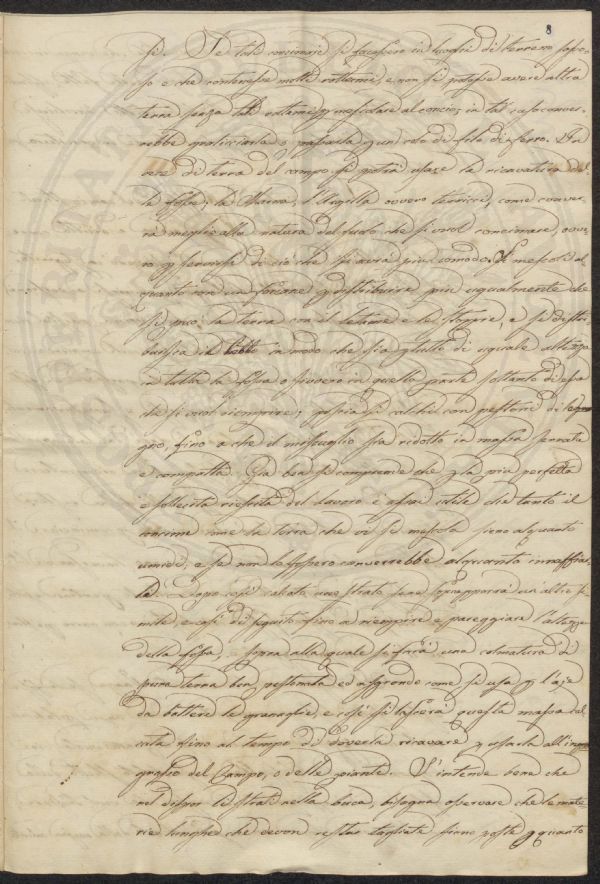 8
si. Se tali concimaje si facessero in luoghi di terreno sasso-
so e che contenesse molti rottami, e non si potesse avere altra
terra senza tali rottami p mescolare al concio; in tal caso conver-
rebbe graticciarla o passarla p un velo di filo di ferro. In
vece di terra del campo si potrà usare la ricavatura del-
le fosse, la Marna, l'Argilla ovvero terriccio, come conver-
rà meglio alla natura del suolo che si vuol concimare, ovve-
ro p servirsi di ciò che si avrà più comodo. Si mescoli al-
quanto con un forcone p distribuire più ugualmente che
si può la terra con il letame e le stoppie, e si distri-
buisca il tutto in modo che sia p tutto di uguale altezza
in tutta la fossa o sivvero in quella parte soltanto di essa
che si vuol riempire; poscia si calchi con pestone di le-
gno, fino a che il miscuglio sia ridotto in massa serrata
e compatta. Già ben si comprende che p la più perfetta
e sollecita riuscita del lavoro è assai utile che tanto il
concime come la terra che vi si mescola sieno alquanto
umidi, e se non lo fossero converrebbe alquanto innaffiar-
li. Dopo così calcato uno strato se ne sopraporrà un altro si-
mile e così di seguito fino a riempire e pareggiare l'altezza
della fossa, sopra alla quale si farà una colmatura di
pura terra ben pestonata ed assodata come si usa p l'aje
da battere le granaglie, e così si lascerà questa massa del
cata fino al tempo di doverla ricavare p usarla all'in-
grasso del Campo, o delle piante. S'intende bene che
nel dispor li strati nella buca, bisogna osservare che le mate-
rie lunghe che devon restar tagliate siano poste p quanto